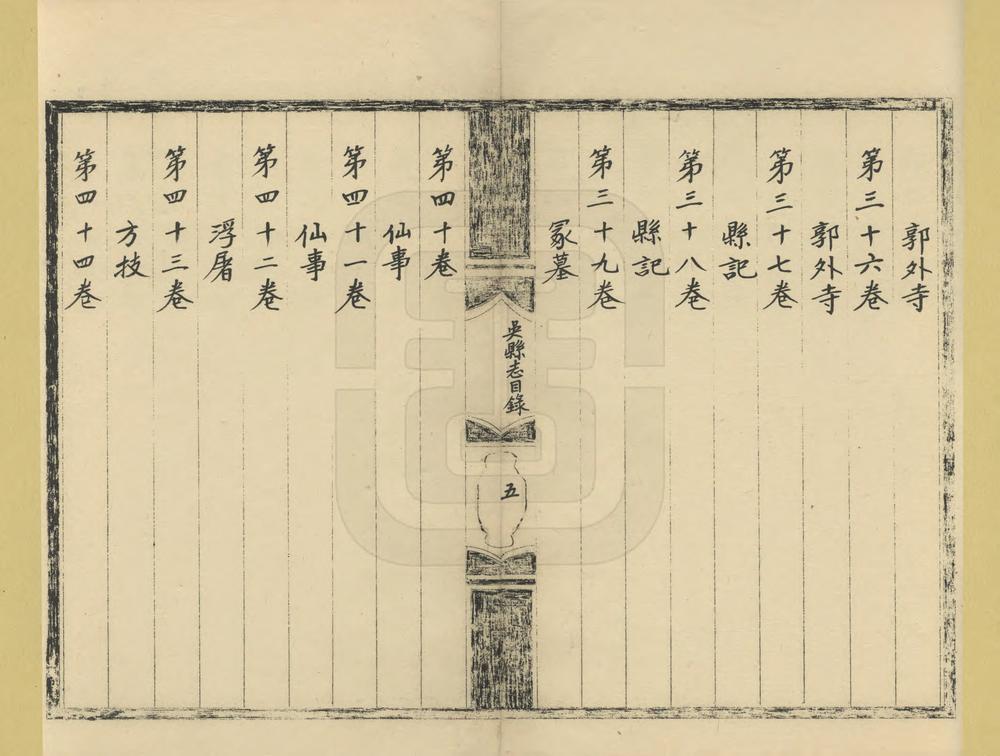 郭外寺
第三十六卷
郭外寺
第三十七卷
縣記
第三十八卷
縣記
第三十九卷
冢墓
吳縣志目錄
五
第四十卷
仙事
第四十一卷
仙事
第四十二卷
浮屠
第四十三卷
方技
第四十四卷